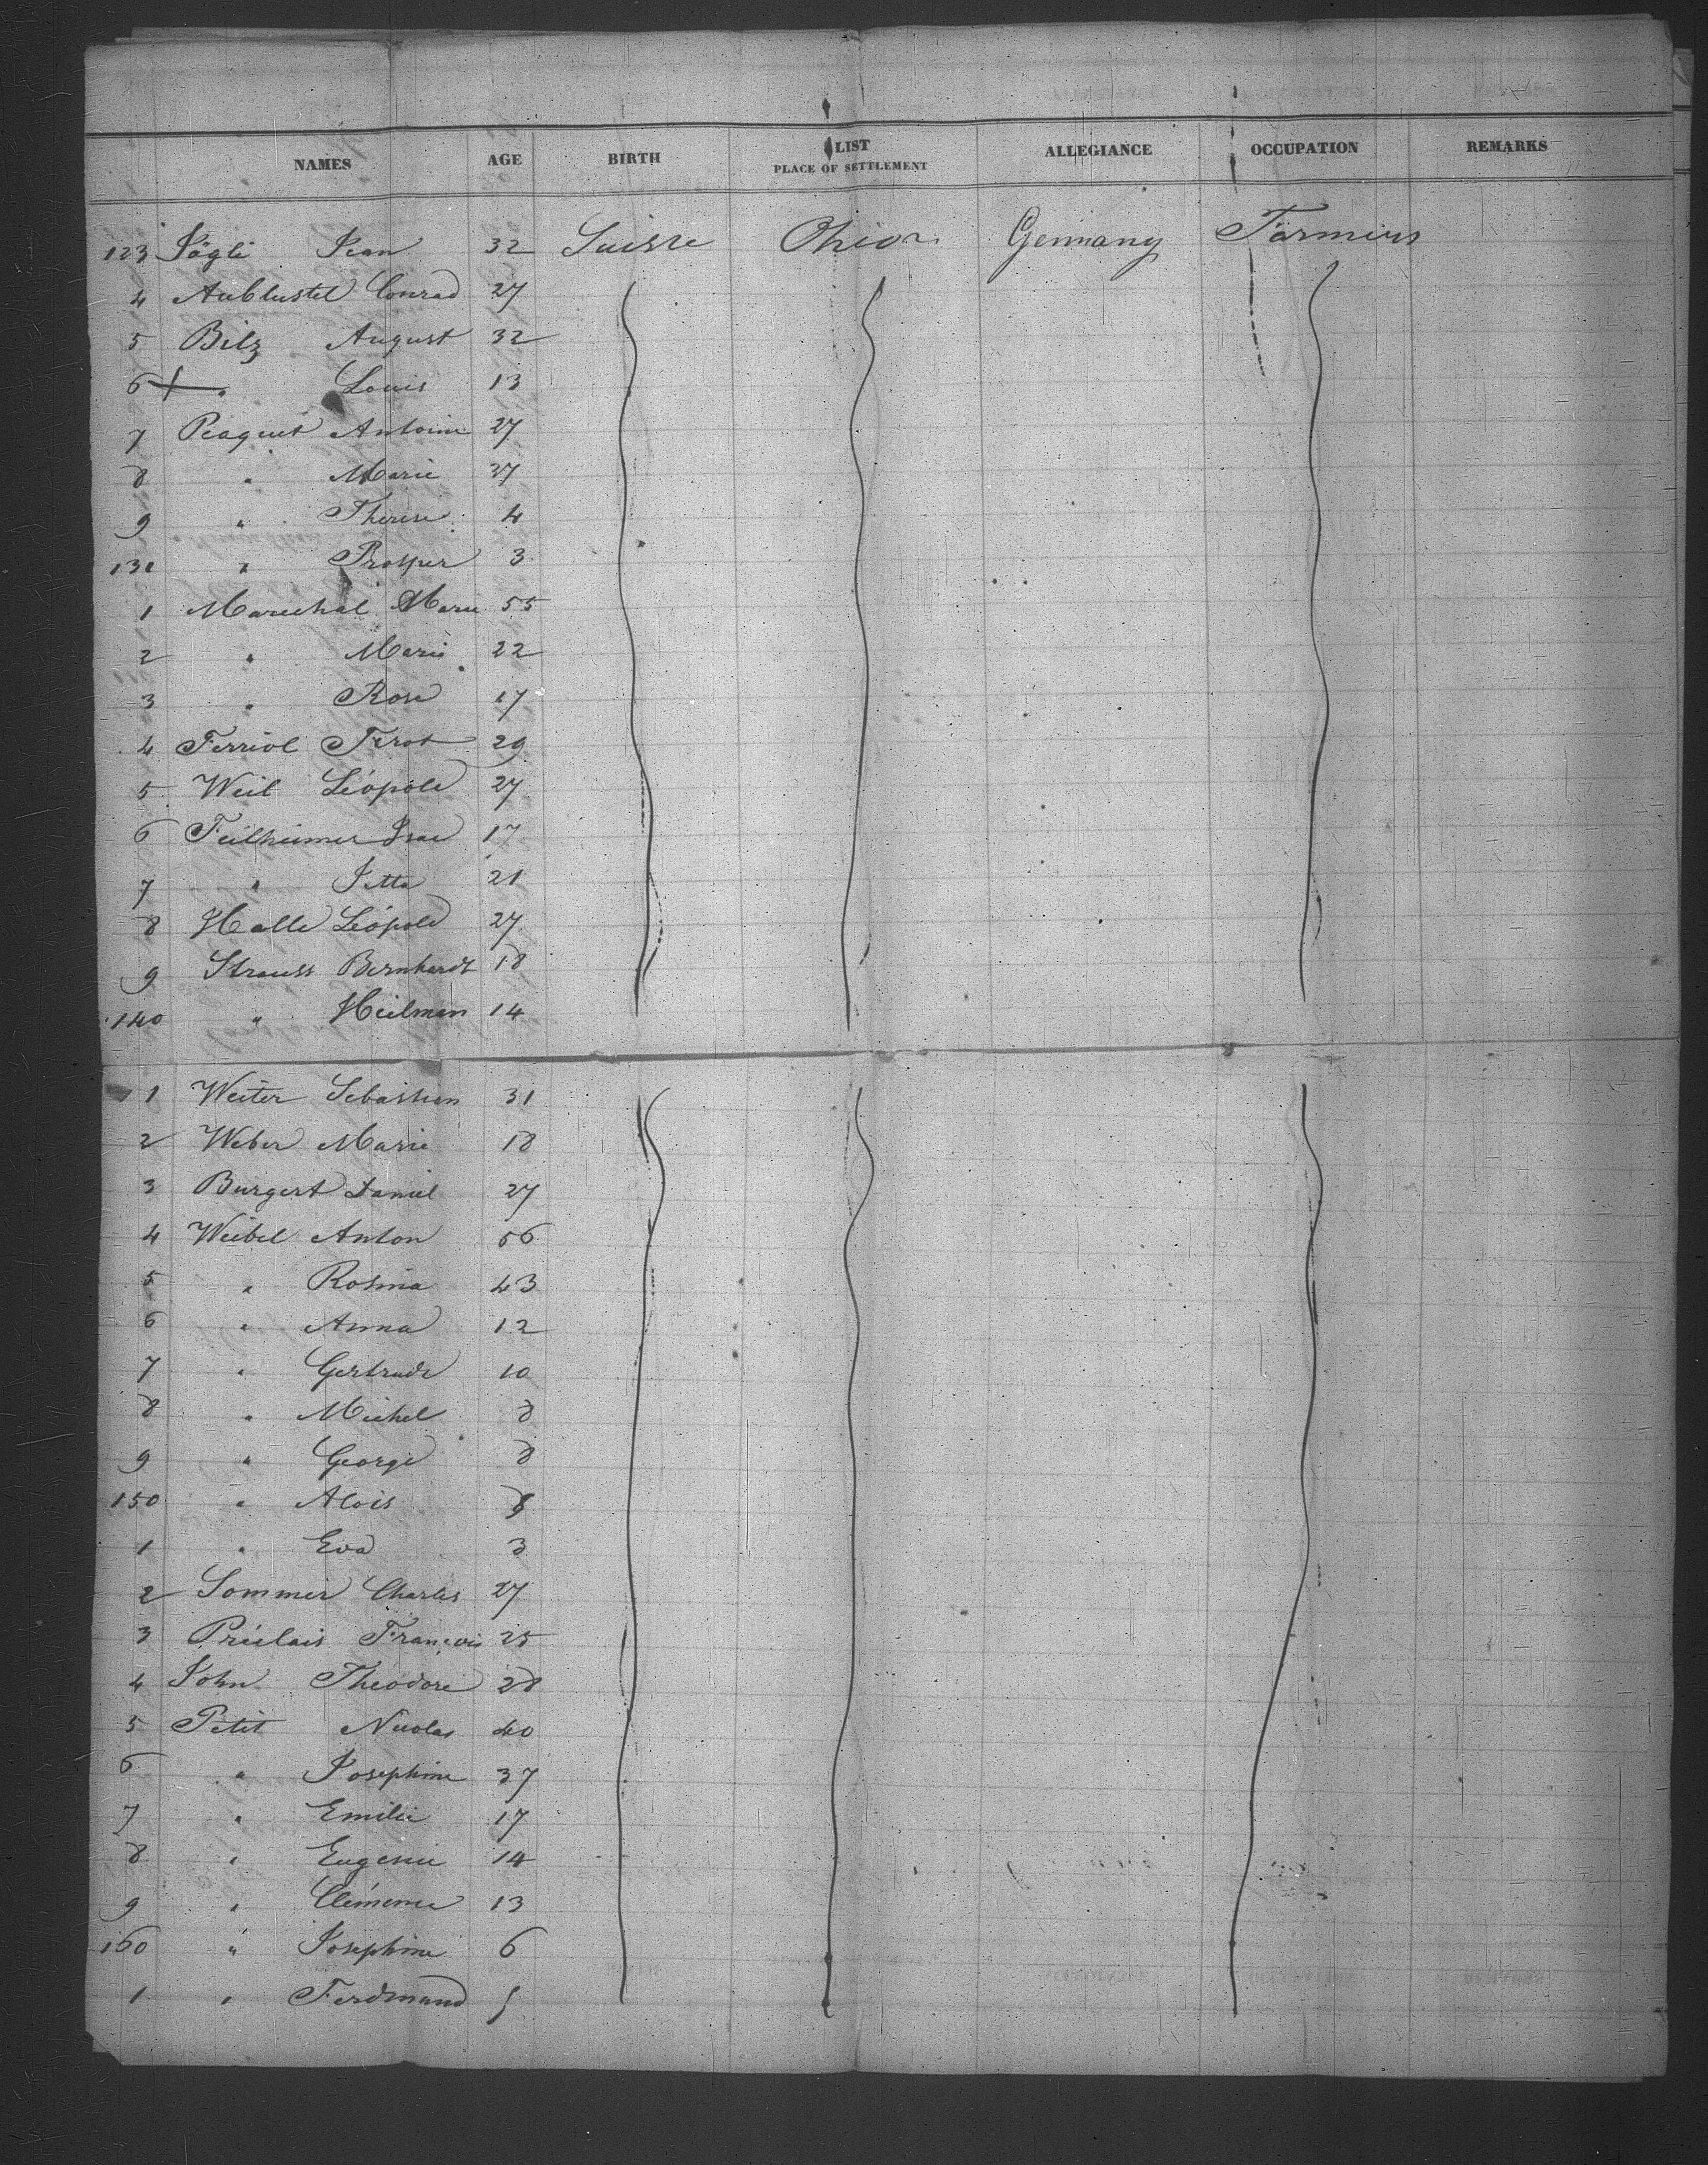 NAMES AGE BIRTH LIST PLACE OF SETTLEMENT ALLEGIANCE OCCUPATION REMARKS
123 Jägli Jean 32 Suisse Ohio Germany Farmers
4 Conrad 27
5 Bilz August 32
6 " Louis 13
7 Peaguet Antoine 27
8 " Marie 37
9 " Therese 4
130 " Prosper 3
1 Marechal Marie 55
2 " Marie 22
3 " Rose 17
4 Ferriol 29
5 Weil Léopold 27
6 Feilheimer Isac 17
7 " Jette 21
8 Halle Léopold 27
9 Strauss Bernhardt 18
140 " Heilman 14
1 Weiter Sebastien 31
2 Weber Marie 18
3 Burgert Daniel 27
4 Weibel Anton 56
5 " Rosina 43
6 " Anna 12
7 " Gertrude 10
8 " Michel 8
9 " George 8
150 " Alois
1 " Eva 3
2 Sommer Charles 27
3 François 25
4 John Theodore 28
5 Petit Nicolas 40
6 " Josephine 37
7 " Emilie 17
8 " Eugenie 14
9 " Clémence 13
160 " Josephine 6
1 " Ferdinand 5